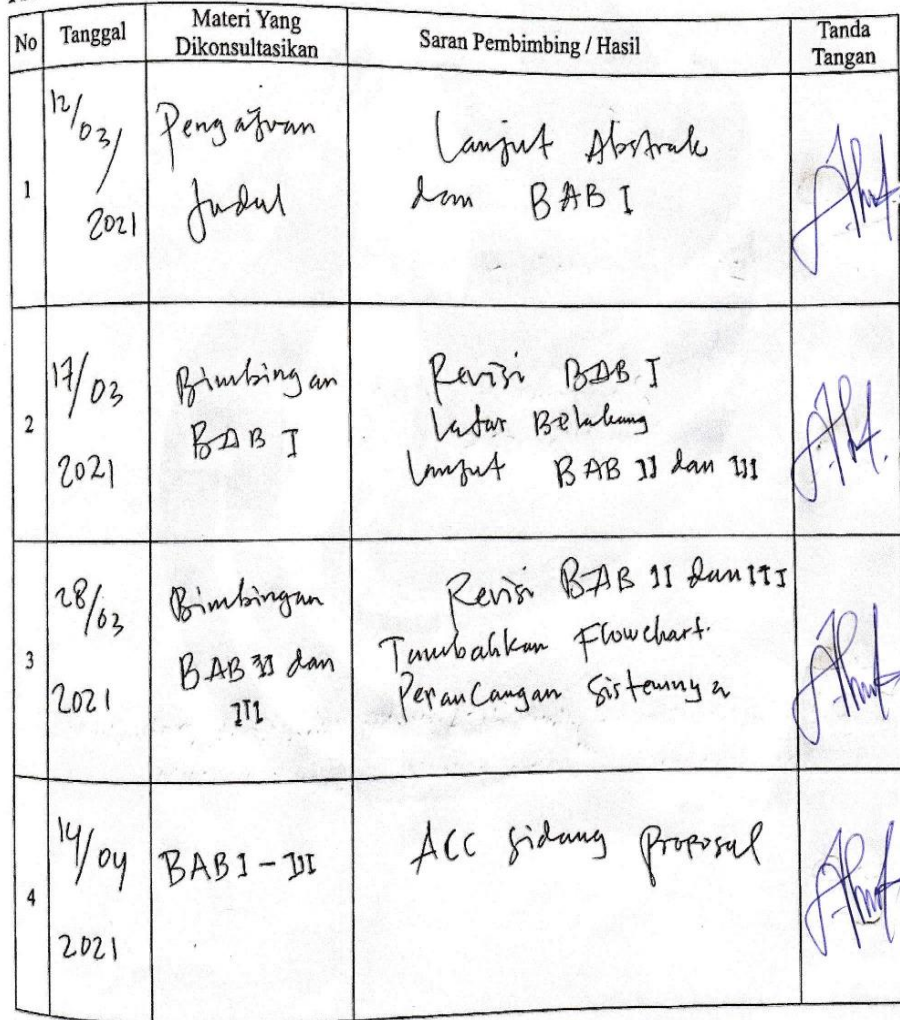 No Tanggal Materi Yang Dikonsultasikan Saran Pembimbing / Hasil Tanda Tangan
1
12/03/
2021
Pengajuan
Judul
Lanjut Abstrak
dan BAB I
2
17/03
2021
Bimbingan
BAB I
Revisi BAB I
Latar Belakang
Lanjut BAB II dan III
3
28/03
2021
Bimbingan
BAB II dan
III
Revisi BAB II dan III
Tambahkan Flowchart.
Perancangan Sistemnya
4
14/04
2021
BAB I - III
ACC Sidang Proposal